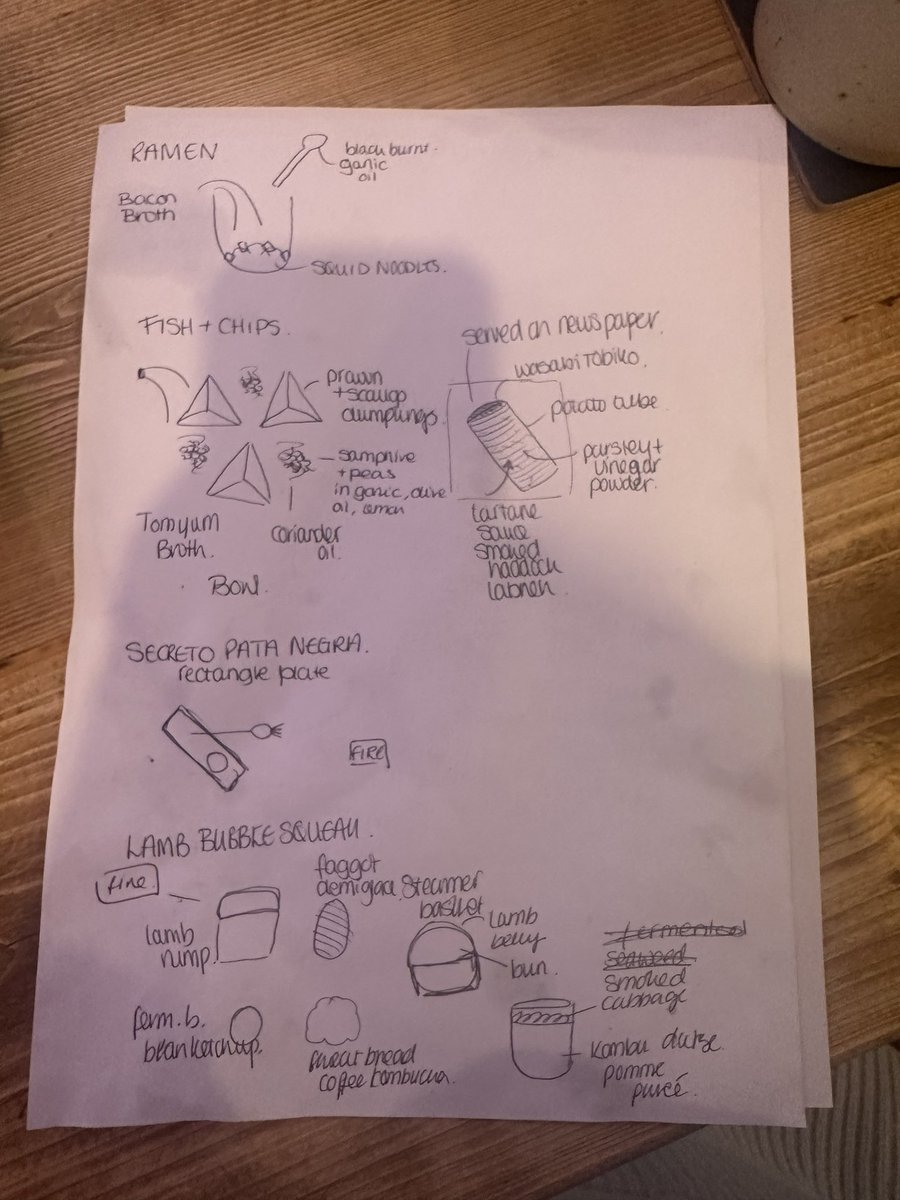 RAMEN
black burnt
garlic
oil
Bacon
Broth
SQUID NOODLES.
FISH + CHIPS.
prawn
+ scallop
dumplings
samphire
+ peas
in garlic, olive
oil, lemon
Tom yum
Broth.
coriander
oil.
Bowl.
served on newspaper.
wasabi Tobiko.
potato tube
parsley +
vinegar
powder.
tartare
sauce
smoked
haddock
labneh
SECRETO PATA NEGRA.
rectangle plate
FIRE
LAMB BUBBLE SQUEAK.
fire
lamb
rump.
faggot
demi glace
Steamer
basket
lamb
belly
bun.
fermented
seaweed
smoked
cabbage
ferm. b.
bean ketchup.
sweetbread
coffee kombucha.
kombu dulse
pomme
pureé.